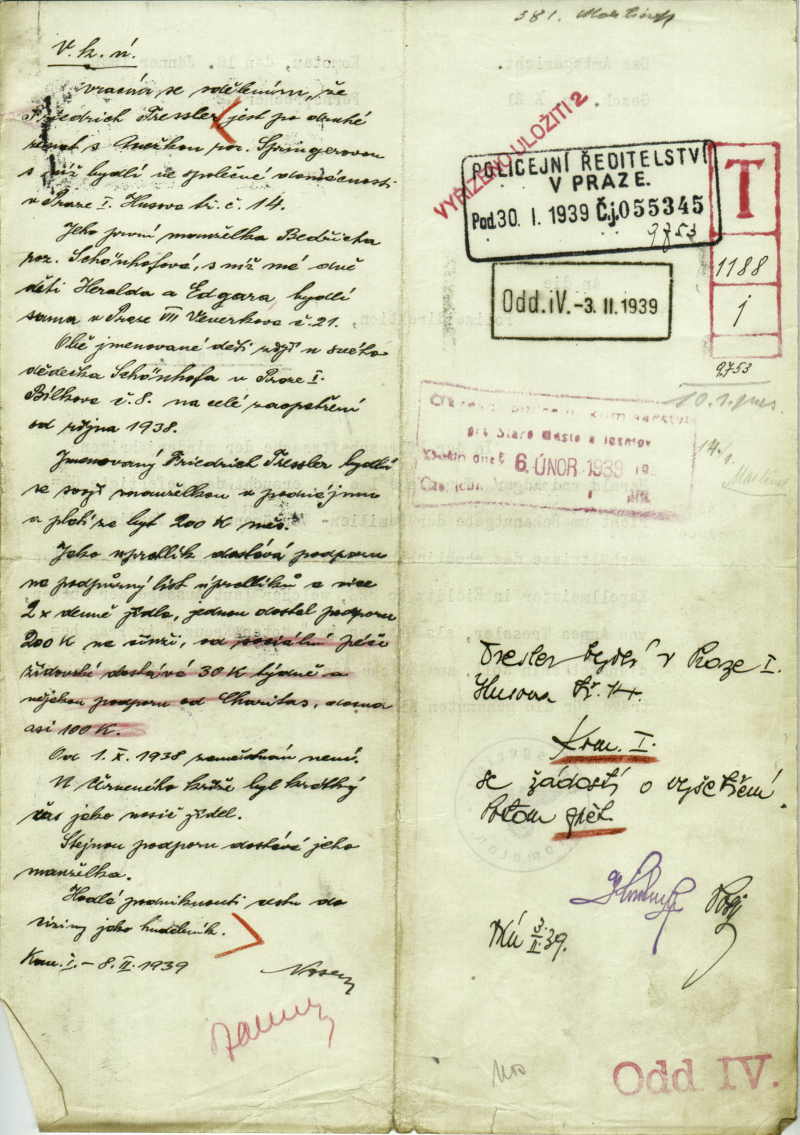 V. k. ú.
vrací se sdělením, že
Friedrich Tressler jest po druhé
ženat s Anežkou roz. Springerovou
s níž bydlí ve společné domácnosti
v Praze I. Husova tř. č. 14.
Jeho první manželka Bedřiška
roz. Schönhofová, s níž má dvě
děti Heralda a Edgara, bydlí
sama v Praze VII Veverkova č. 21.
Obě jmenované děti žijí u svého
dědečka Schönhofa v Praze I.
Bílkova č. 8. na celé zaopatření
od října 1938.
Jmenovaný Friedrich Tressler bydlí
se svojí manželkou v podnájmu
a platí za byt 200 K měs.
Jako uprchlík dostává podporu
na podpůrný list uprchlíků a sice
2x denně jídlo, jednou dostal podporu
200 K na šatstvo, od sociální péče
židovské dostává 30 K týdně a
nějakou podporu od Charitas, doma
asi 100 K.
Od 1. X. 1938 zaměstnán není.
U Červeného kříže byl krátký
čas jako nosič jídel.
Stejnou podporu dostává jeho
manželka.
Hodlá podniknouti cestu do
ciziny jako hudebník.
Kom. I. – 8. II. 1939
381.
VYŘÍZENO ULOŽITI 2
POLICEJNÍ ŘEDITELSTVÍ
V PRAZE.
Pod. 30. I. 1939 Č.j. 055345
9753
T
1188
1
Odd. IV. -3. II. 1939
9753
10. 1.
14/1.
pro Staré město a Josefov
6. ÚNOR 1939
Tresler bydlí v Praze I.
Husova tř. 14.
Kom. I.
se žádostí o vyšetření
Potom zpět.
3/II. 39.
Odd IV.